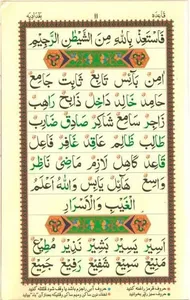 فَاسْتَعِذْ بِاللّٰهِ مِنَ الشَّيْطٰنِ الرَّجِيْمِ
اٰمِنٌ بَاْئِسٌ تَابِعٌ ثَابِتٌ جَامِعٌ
حَامِدٌ خَالِدٌ دَاخِلٌ ذَابِحٌ رَاهِبٌ
زَاجِرٌ سَامِعٌ شَاكِرٌ صَادِقٌ ضَارِبٌ
طَالِبٌ ظَالِمٌ عَاقِدٌ غَافِرٌ فَاعِلٌ
قَاعِدٌ كَاهِلٌ لَازِمٌ مَاضِىٌ نَاظِرٌ
وَاسِعٌ هَابِلٌ يَابِسٌ وَاللّٰهُ اَعْلَمُ
الْغَيْبِ وَالْاَسْرَارِ
اَسِيْرٌ يَسِيْرٌ بَشِيْرٌ نَذِيْرٌ مُطِيْعٌ
مَنِيْعٌ سَمِيْعٌ شَفِيْعٌ رَفِيْعٌ جَمِيْعٌ